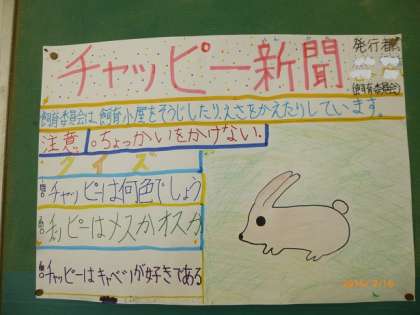 チャッピー新聞
発行者
(飼育委員会)
飼育委員会は、飼育小屋をそうじしたり、えさをかえたりしています。
注意 。ちょっかいをかけない。
クイズ
チャッピーは何色でしょう
チャッピーはメスかオスか
チャッピーはキャベツが好きである